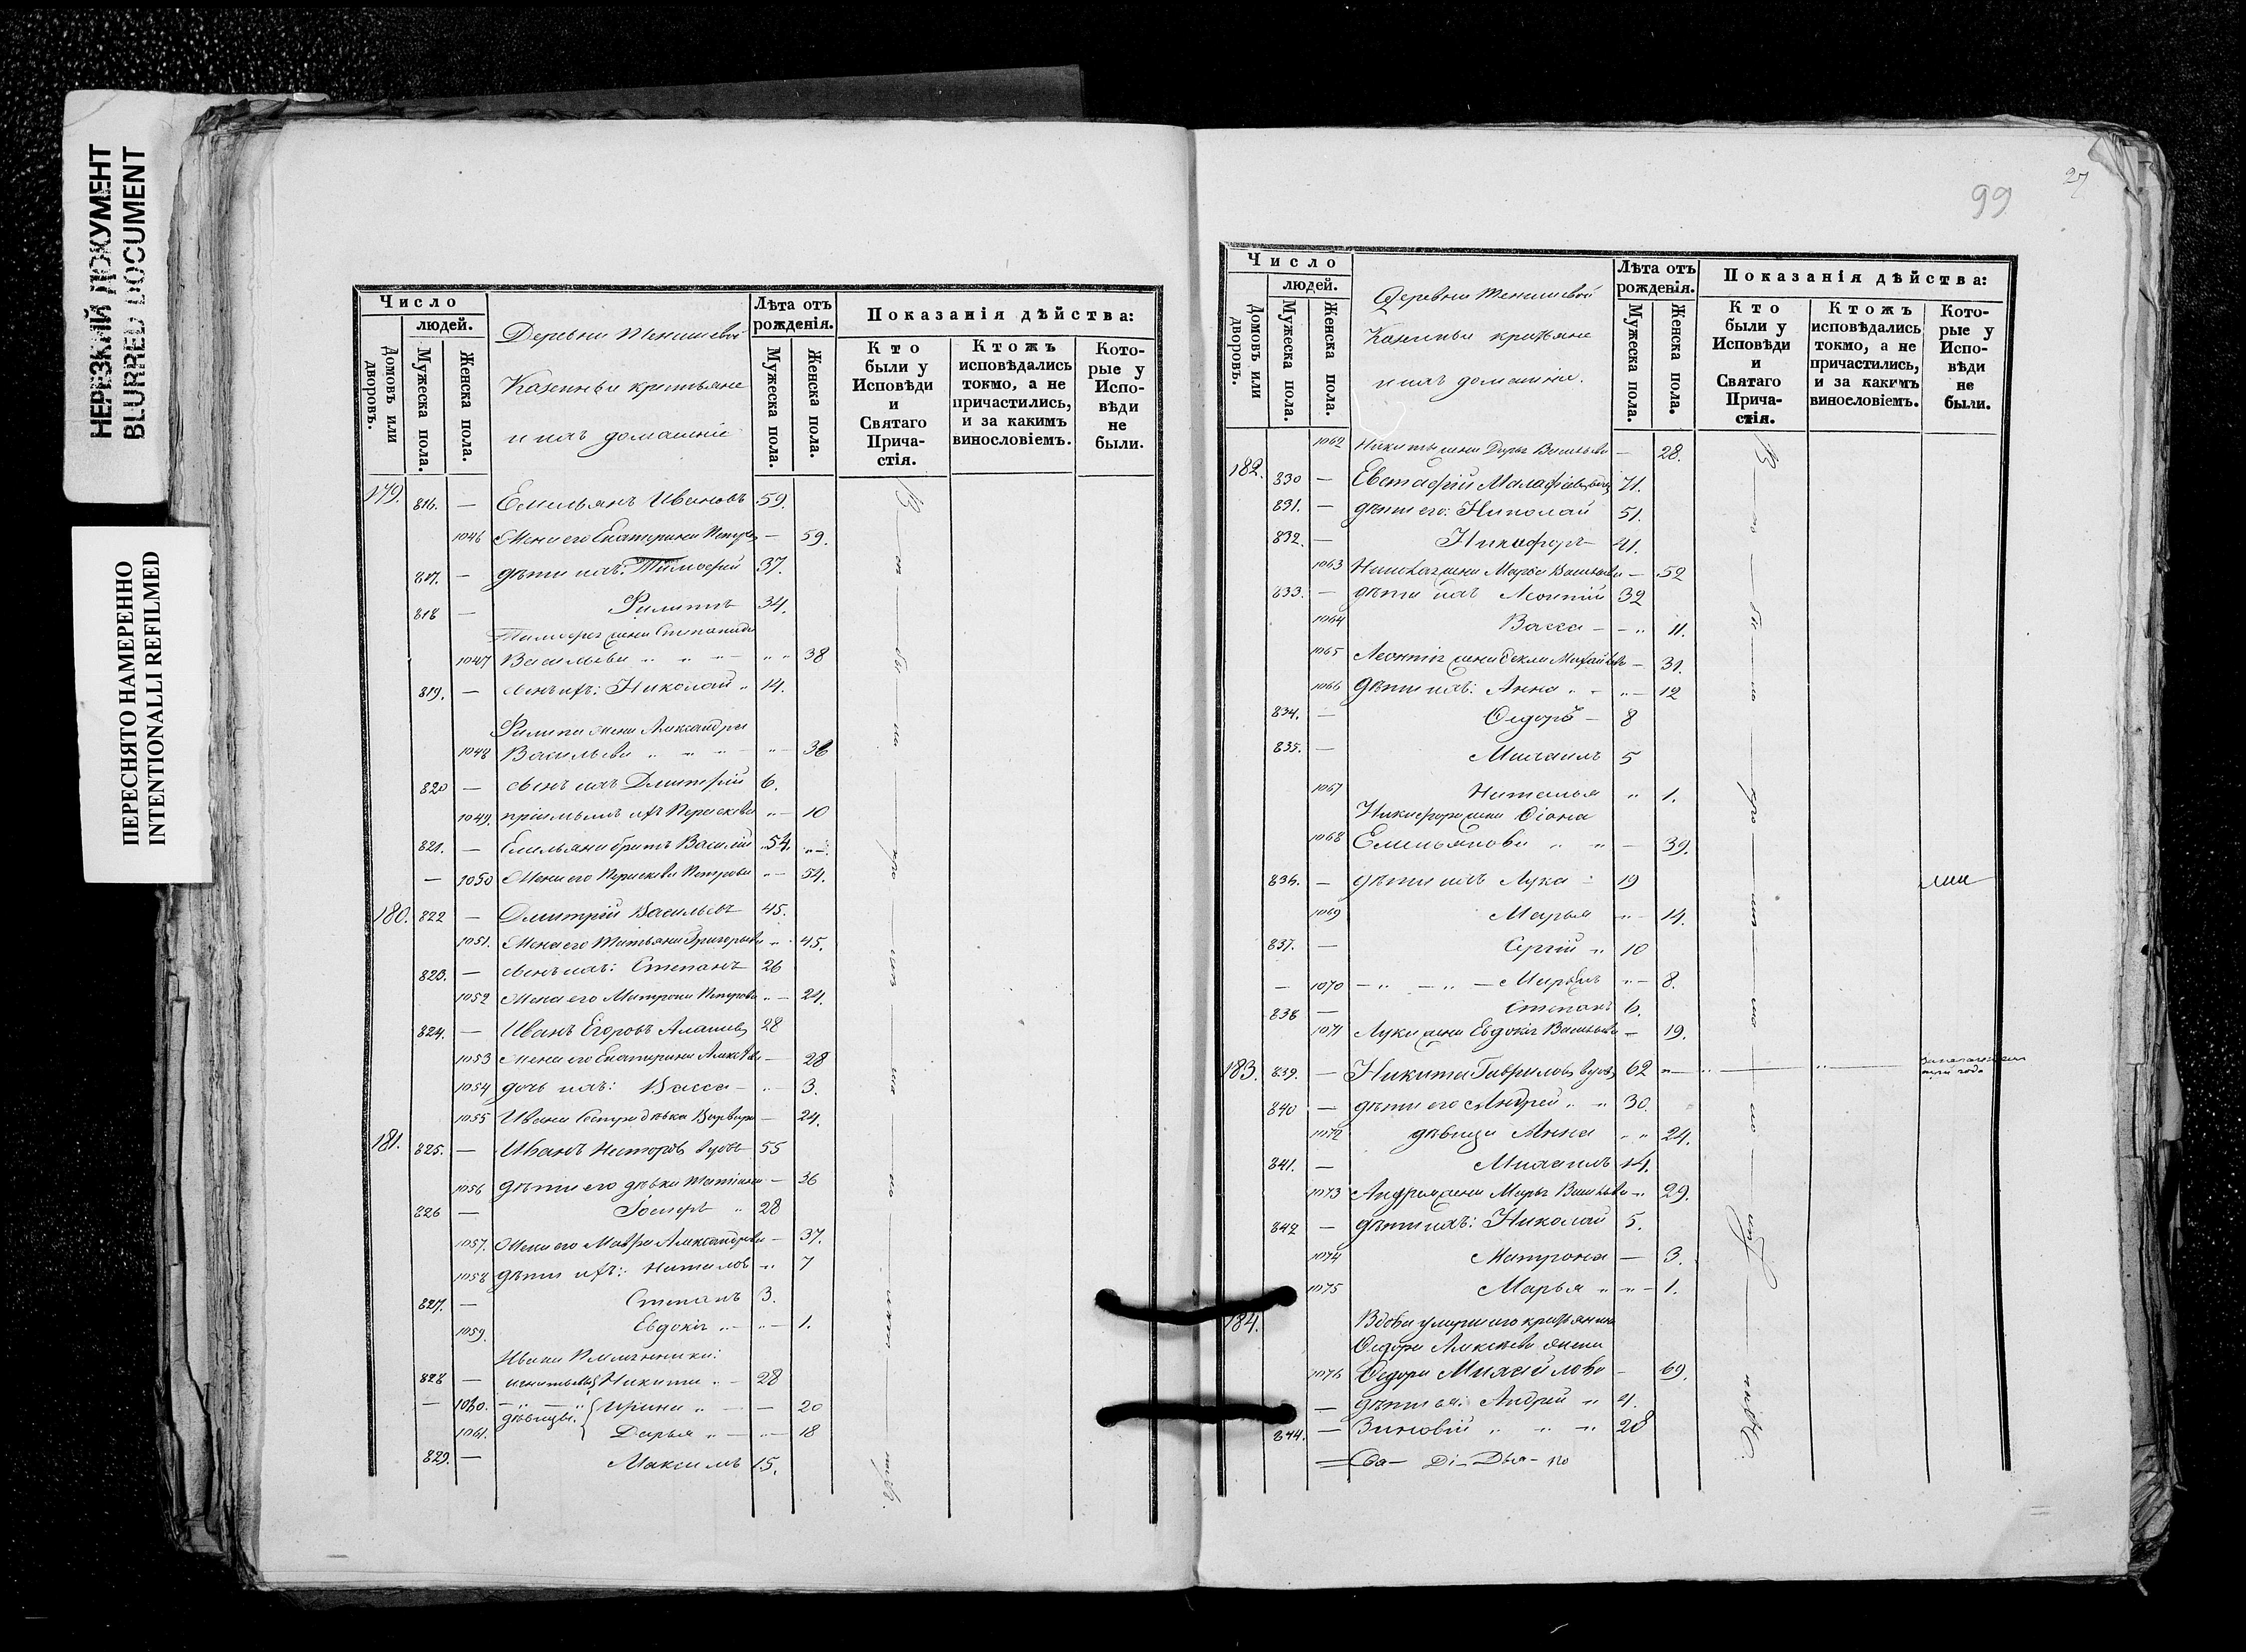 НЕРЕЗКИЙ ДОКУМЕНТ
BLURRED DOCUMENT
ПЕРЕСНЯТО НАМЕРЕННО
INTENTIONALLI REFILMED
Число
людей.
Домовъ или дворовъ.
Мужеска пола.
Женска пола.
Деревни
Казенные крестьяне
и ихъ домашніе
Лѣта отъ рожденія.
Мужеска пола.
Женска пола.
Показанія дѣйства:
Кто были у Исповѣди и Святаго Прича-стія.
Ктожъ исповѣдались токмо, а не причастились, и за какимъ винословіемъ.
Кото-рые у Испо-вѣди не были.
179. 816. — Емельянъ Ивановъ 59.
1046 Жена его Екатерина Петрова — 59.
817. — дѣти ихъ: Тимофей 37.
818 — Филиппъ 34.
Тимофея жена Степанида
1047 Васильева „ „ „ — „ „ 38
819. — сынъ ихъ: Николай „ 14.
Филипа жена Александра
1048 Васильева „ „ „ — „ — 36
820 — сынъ ихъ Дмитрій 6.
1049. ихъ Параскева „ — 10
821. — Емельяна братъ Василій 54. „ —
— 1050 Жена его Параскева Петрова „ — 54.
180. 822 — Дмитрій Васильевъ 45.
1051. Жена его Татьяна Григорьева „ 45.
823. — сынъ ихъ: Степанъ 26
1052 Жена его Матрона Петрова „ — 24.
824. — Иванъ Егоровъ 28
1053 Жена его Екатерина Алексѣева — 28
1054 дочь ихъ: Васса — „ — 3.
1055 Ивана сестра дѣвка Варвара — 24.
181. 825. — Иванъ Несторовъ вдовъ 55
1056 дѣти его дѣвка Татіана — 36
826 — Іосифъ „ 28
1057. Жена его Мавра Александрова — 37.
1058 дѣти ихъ: Наталья „ 7
827. — Степанъ 3.
1059. Евдокія „ — „ — 1.
Ивана племянники:
828 — Никита „ — 28
— 1060. — „ — „ дѣвицы { Ирина „ — — 20
1061. Дарья „ — „ — 18
829. — Максимъ 15.
99
27
Число
людей.
Домовъ или дворовъ.
Мужеска пола.
Женска пола.
Деревни
Казенные крестьяне
и ихъ домашніе.
Лѣта отъ рожденія.
Мужеска пола.
Женска пола.
Показанія дѣйства:
Кто были у Исповѣди и Святаго Прича-стія.
Ктожъ исповѣдались токмо, а не причастились, и за какимъ винословіемъ.
Кото-рые у Испо-вѣди не были.
1062 Никиты жена Дарья Васильева — 28.
182. 830 — Евстафій вдовъ 71.
831. — дѣти его: Николай 51.
832. — Никифоръ — 41.
1063 Николая жена Марья Васильева — 52
833. — дѣти ихъ Леонтій 32
1064 Васса — — „ 11.
1065 Леонтія жена Ѳекла Михайлова — 31.
1066 дѣти ихъ: Анна „ — „ — 12
834. — Ѳедоръ — 8
835. — Михаилъ 5
1067 Наталья „ 1.
Никифора жена
1068 Емельянова „ „ — 39.
836. — дѣти ихъ Лука — 19
1069 Марья — „ — 14.
837. — Сергій „ 10
— 1070 — „ — „ — „ — 8.
838 — Степанъ 6.
1071 Луки жена Евдокія Васильева — 19.
183. 839. — Никита Гавриловъ вдовъ 62 „ — „ — „ —
840 — дѣти его Андрей „ „ 30.
1072 дѣвица Анна „ „ 24.
841. — Михаилъ 14.
1073 Андрея жена Марья Васильева „ 29.
842 — дѣти ихъ: Николай 5.
1074 Матрона — 3.
1075 Марья „ „ — 1.
184. Вдова умершаго крестьянина
Ѳедора Алексѣева жена
1076 Михайлова — 69.
— дѣти ея: Андрей „ 4.
844. — Зиновій „ „ „ 28